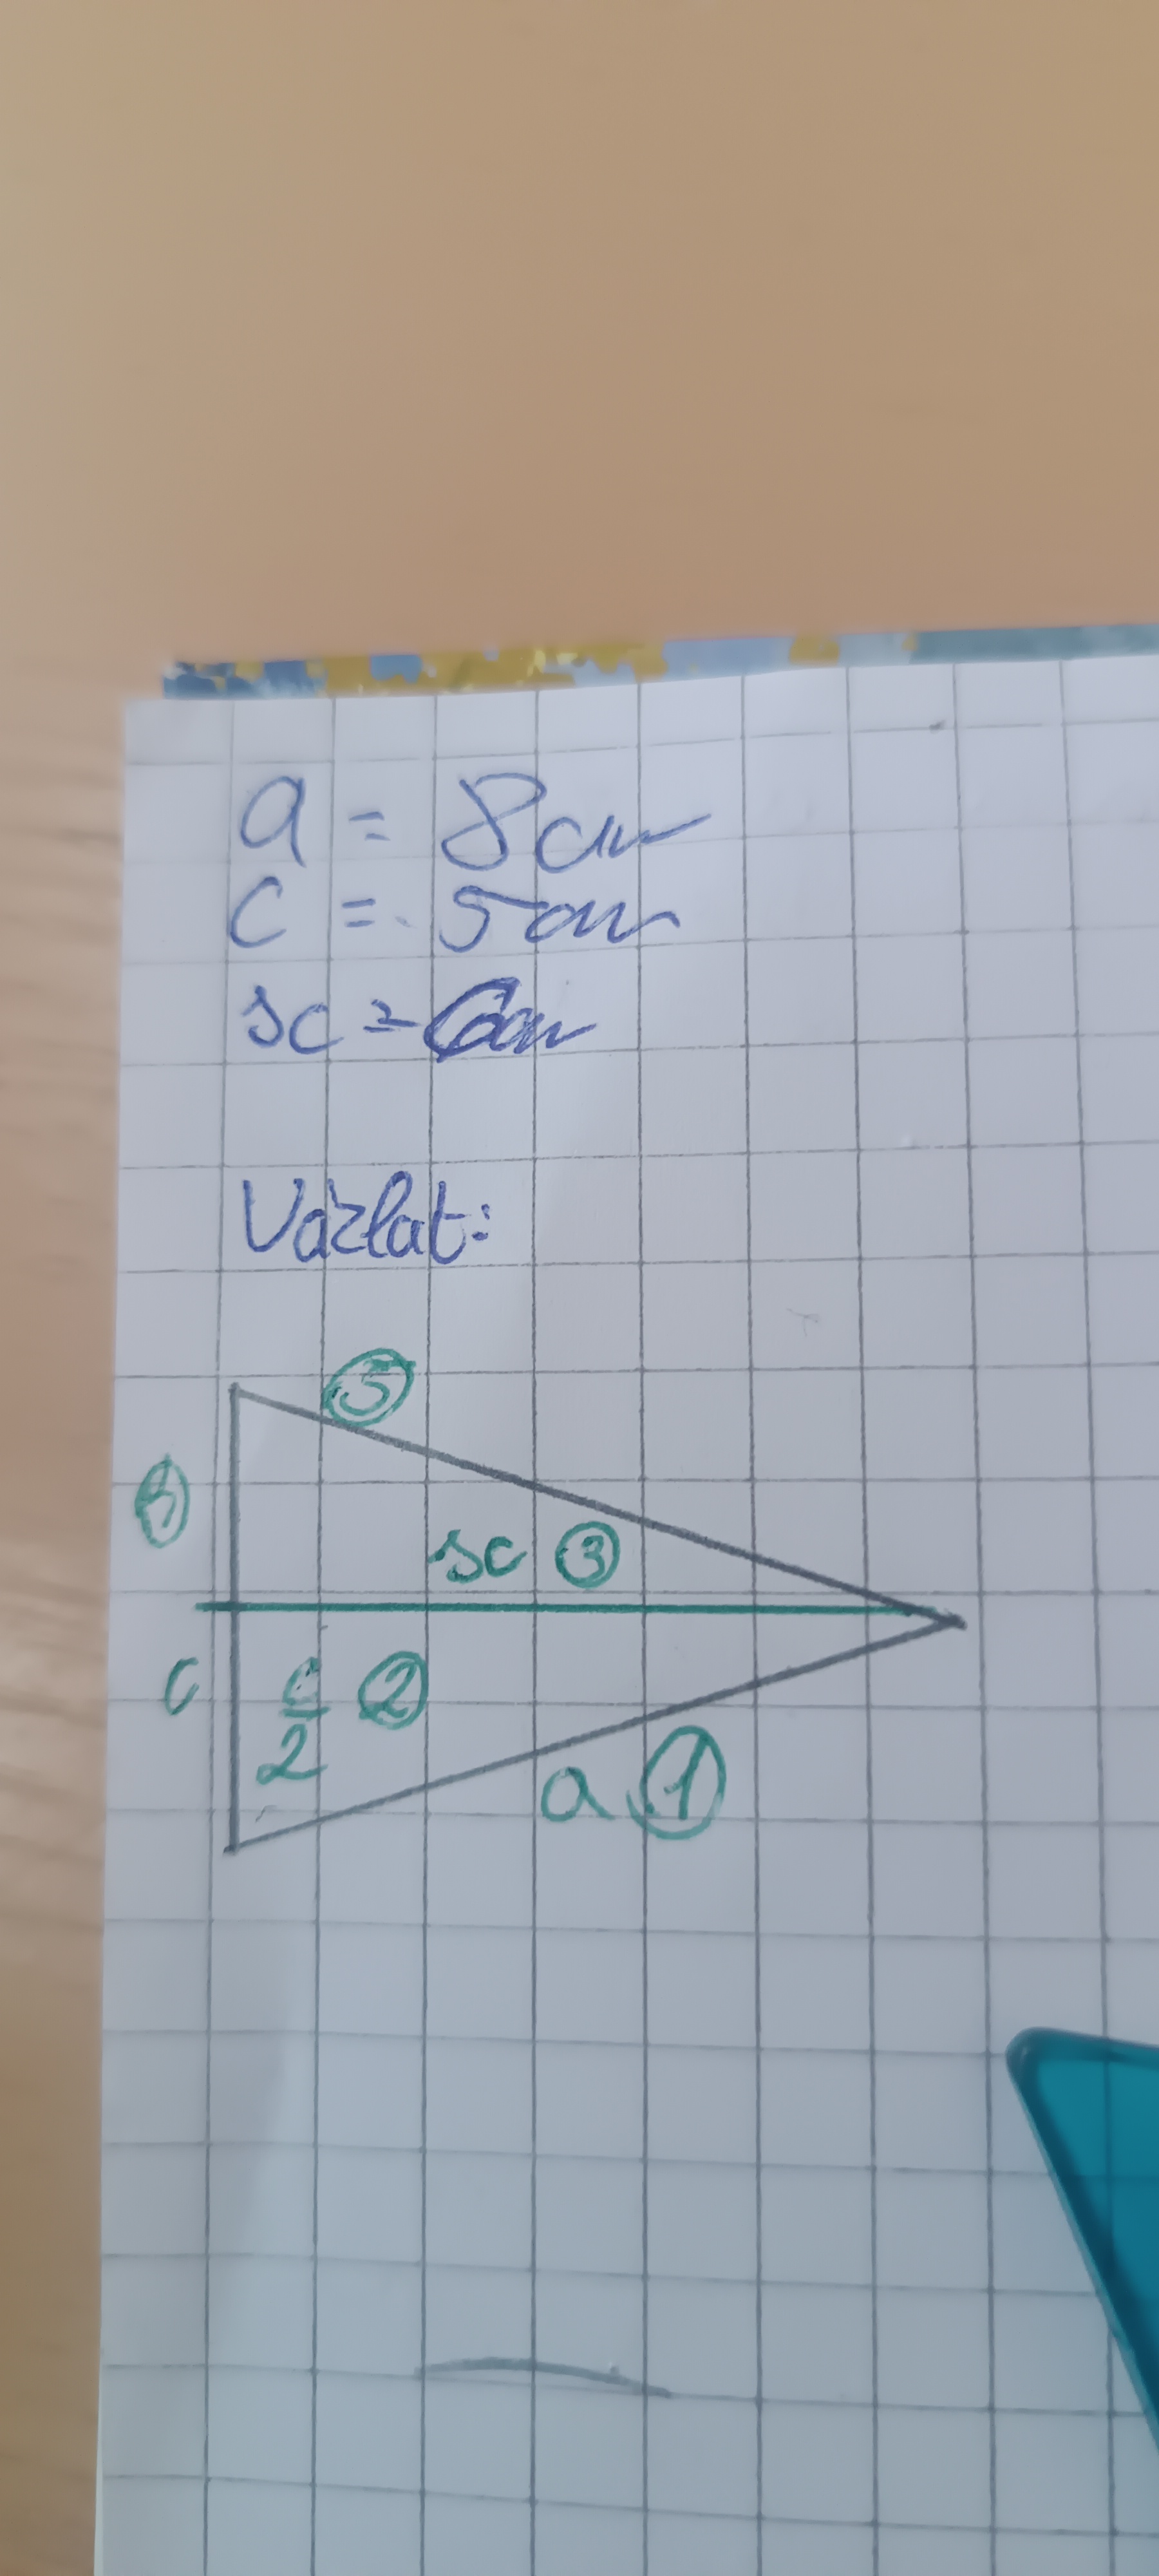 a = 8cm
c = 5cm
sc = 6cm
Vázlat:
⑤
④
sc ③
c
c/2 ②
a ①